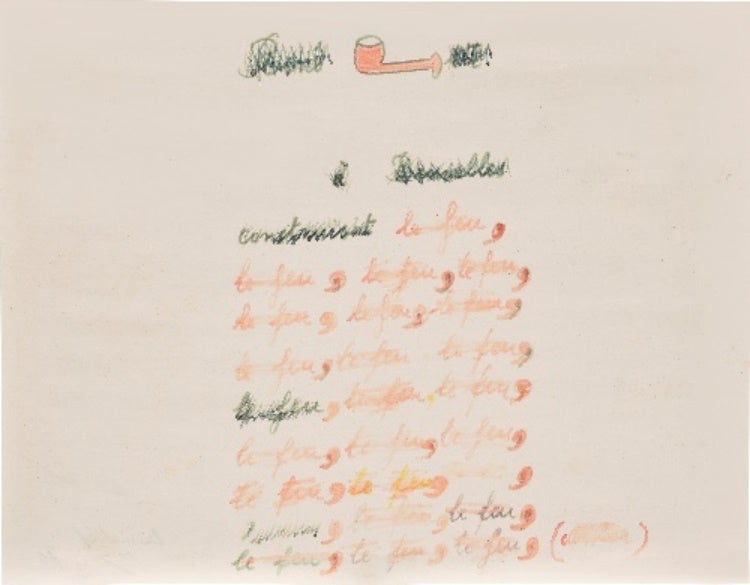 à Bruxelles
construisit le feu,
le feu, le feu, le feu,
le feu, le feu, le feu,
le feu, le feu le feu,
le feu, le feu, le feu,
le feu, le feu, le feu,
le feu, le feu,
le feu,
le feu, le feu, le feu,